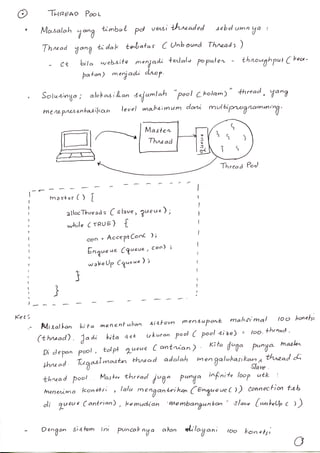 THREAD POOL
Masalah yang timbul pd versi threaded sebelumnya :
Thread yang tidak terbatas ( Unbound Threads )
- ct bila website menjadi terlalu populer - throughput ( kece-
patan ) menjadi drop.
Solusinya ; alokasikan sejumlah "pool ( kolam )" thread , yang
merepresentasikan level maksimum dari multiprogramming.
Master
Thread
Queue
Thread Pool
master ( ) {
allocThreads ( slave, queue ) ;
while ( TRUE ) {
con = AcceptCon( ) ;
Enqueue ( queue , con ) ;
wakeUp ( queue ) ;
}
}
Ket :
- Misalkan kita menentukan sistem mensupport maksimal 100 koneksi
( thread ) . Jadi kita set ukuran pool ( pool size ) = 100 thread .
Di depan pool , tdpt queue ( antrian ) . Kita juga punya master
thread . Tugas master thread adalah mengalokasikan thread di
slave
thread pool Master thread juga punya infinite loop utk :
menerima koneksi , lalu mengantrikan ( Enqueue ( ) ) connection tsb
di queue ( antrian ) , kemudian membangunkan slave ( wakeUp ( ) )
- Dengan sistem ini puncaknya akan dilayani 100 koneksi